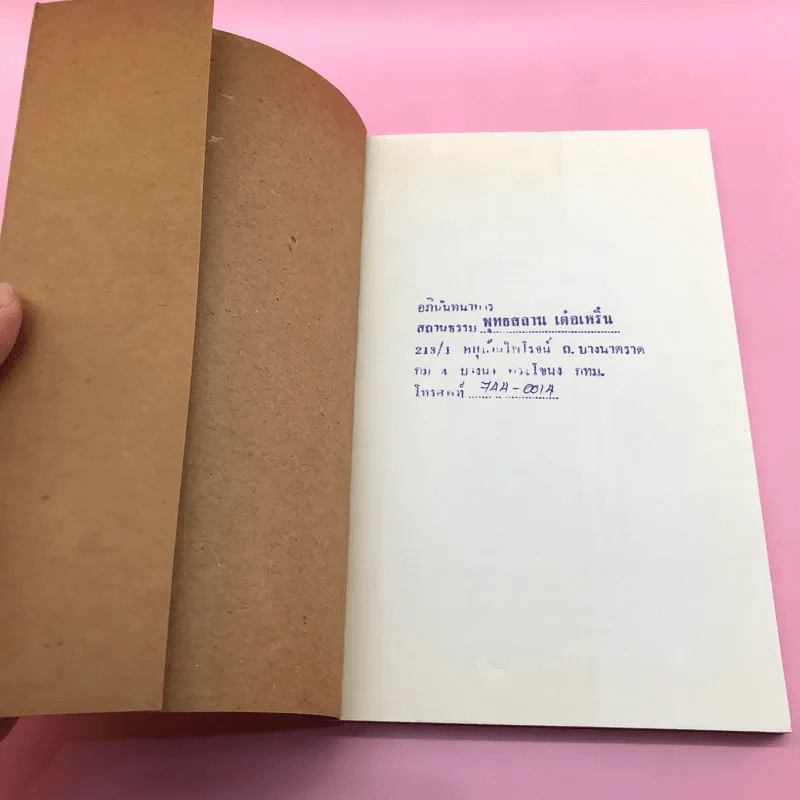 อภินันทนาการ
สถานธรรม พุทธสถาน เต๋อเหริ๋น
213/1 หมู่บ้านไพโรจน์ ถ.บางนาตราด
กม 4 บางนา พระโขนง กทม.
โทรศัพท์ 744-0014